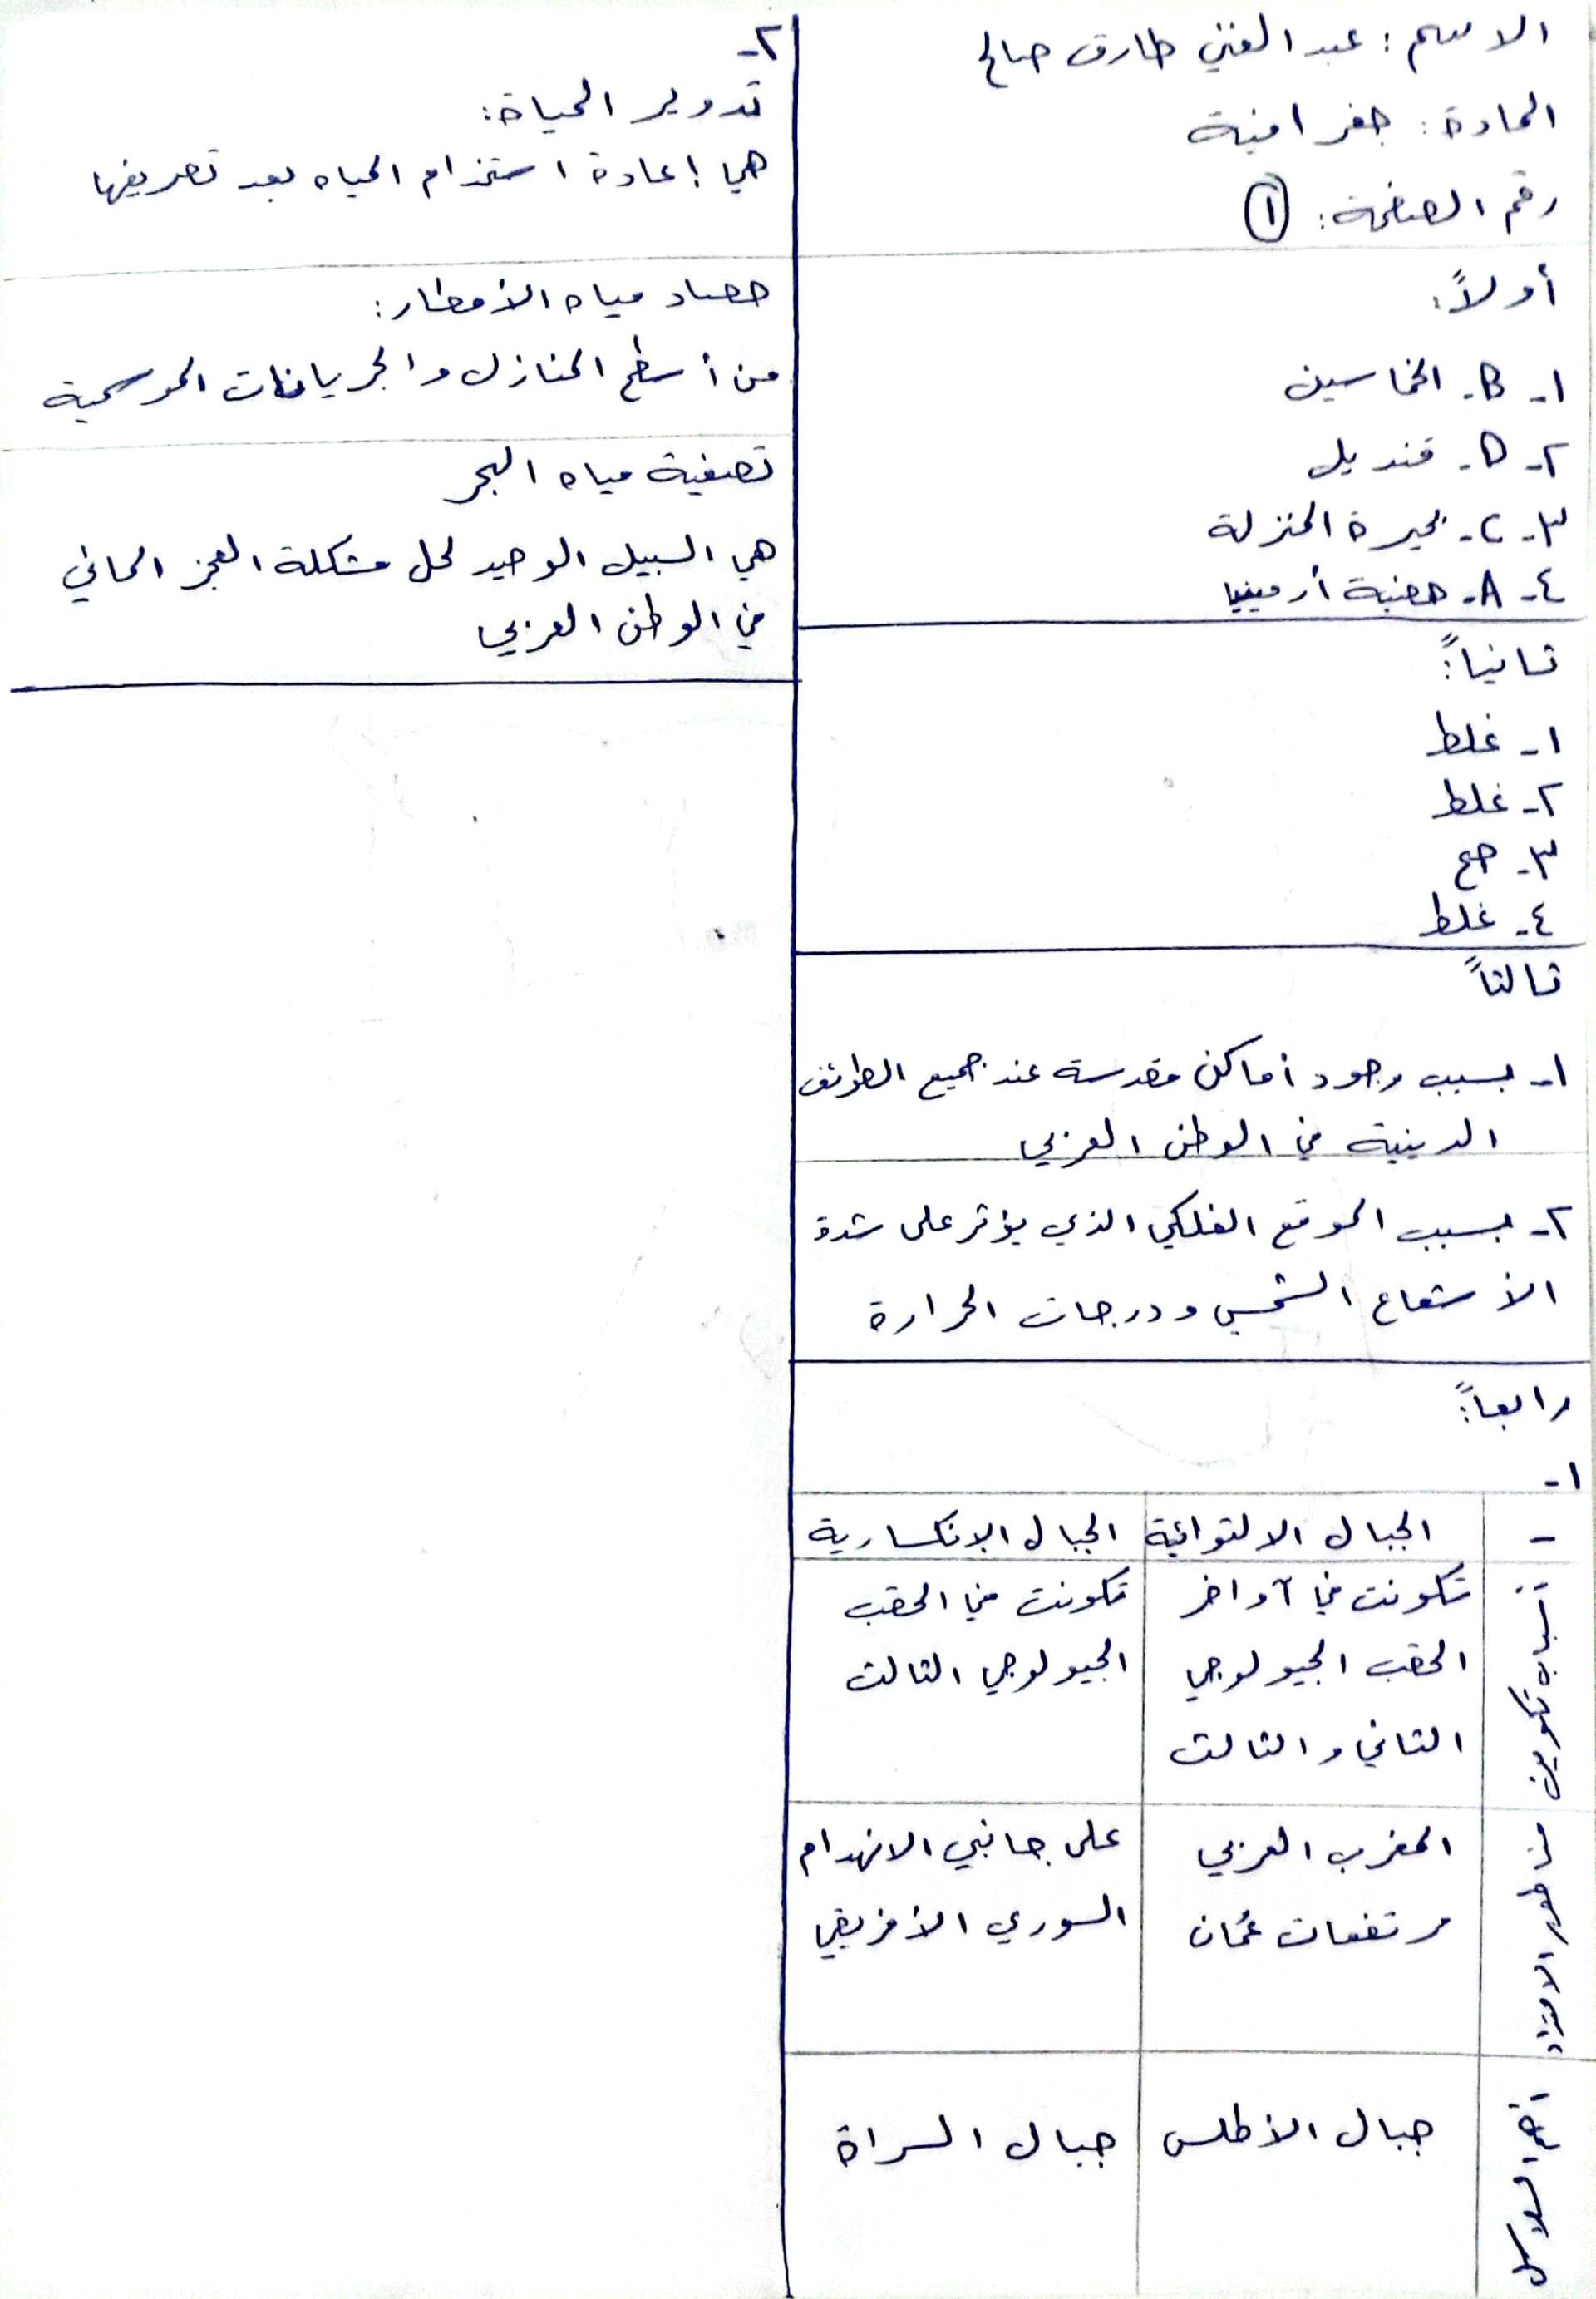 الاسم: عبد الغني طارق صالح
المادة: جغرافية
رقم الصفحة: ١
أولاً:
١- B- الخماسين
٢- D- قنديل
٣- C- بحيرة المنزلة
٤- A- هضبة أرمينيا
ثانياً:
١- غلط
٢- غلط
٣- صح
٤- غلط
ثالثاً
١- بسبب وجود أماكن مقدسة عند جميع الطوائف
الدينية في الوطن العربي
٢- بسبب الموقع الفلكي الذي يؤثر على شدة
الأشعاع الشمسي ودرجات الحرارة
رابعاً:
١-
- الجبال الالتوائية الجبال الانكسارية
أسباب تكوين
تكونت في آواخر
الحقب الجيولوجي
الثاني والثالث
تكونت في الحقب
الجيولوجي الثالث
مناطق الامتداد
المغرب العربي
مرتفعات عُمان
على جانبي الانهدام
السوري الأفريقي
أهم السلاسل
جبال الأطلس
جبال السراة
٢-
تدوير المياة:
هي إعادة استخدام المياه بعد تصريفها
حصاد مياه الأمطار:
من أسطح المنازل والجريانات الموسمية
تصفية مياه البحر
هي السبيل الوحيد لحل مشكلة العجز المائي
في الوطن العربي